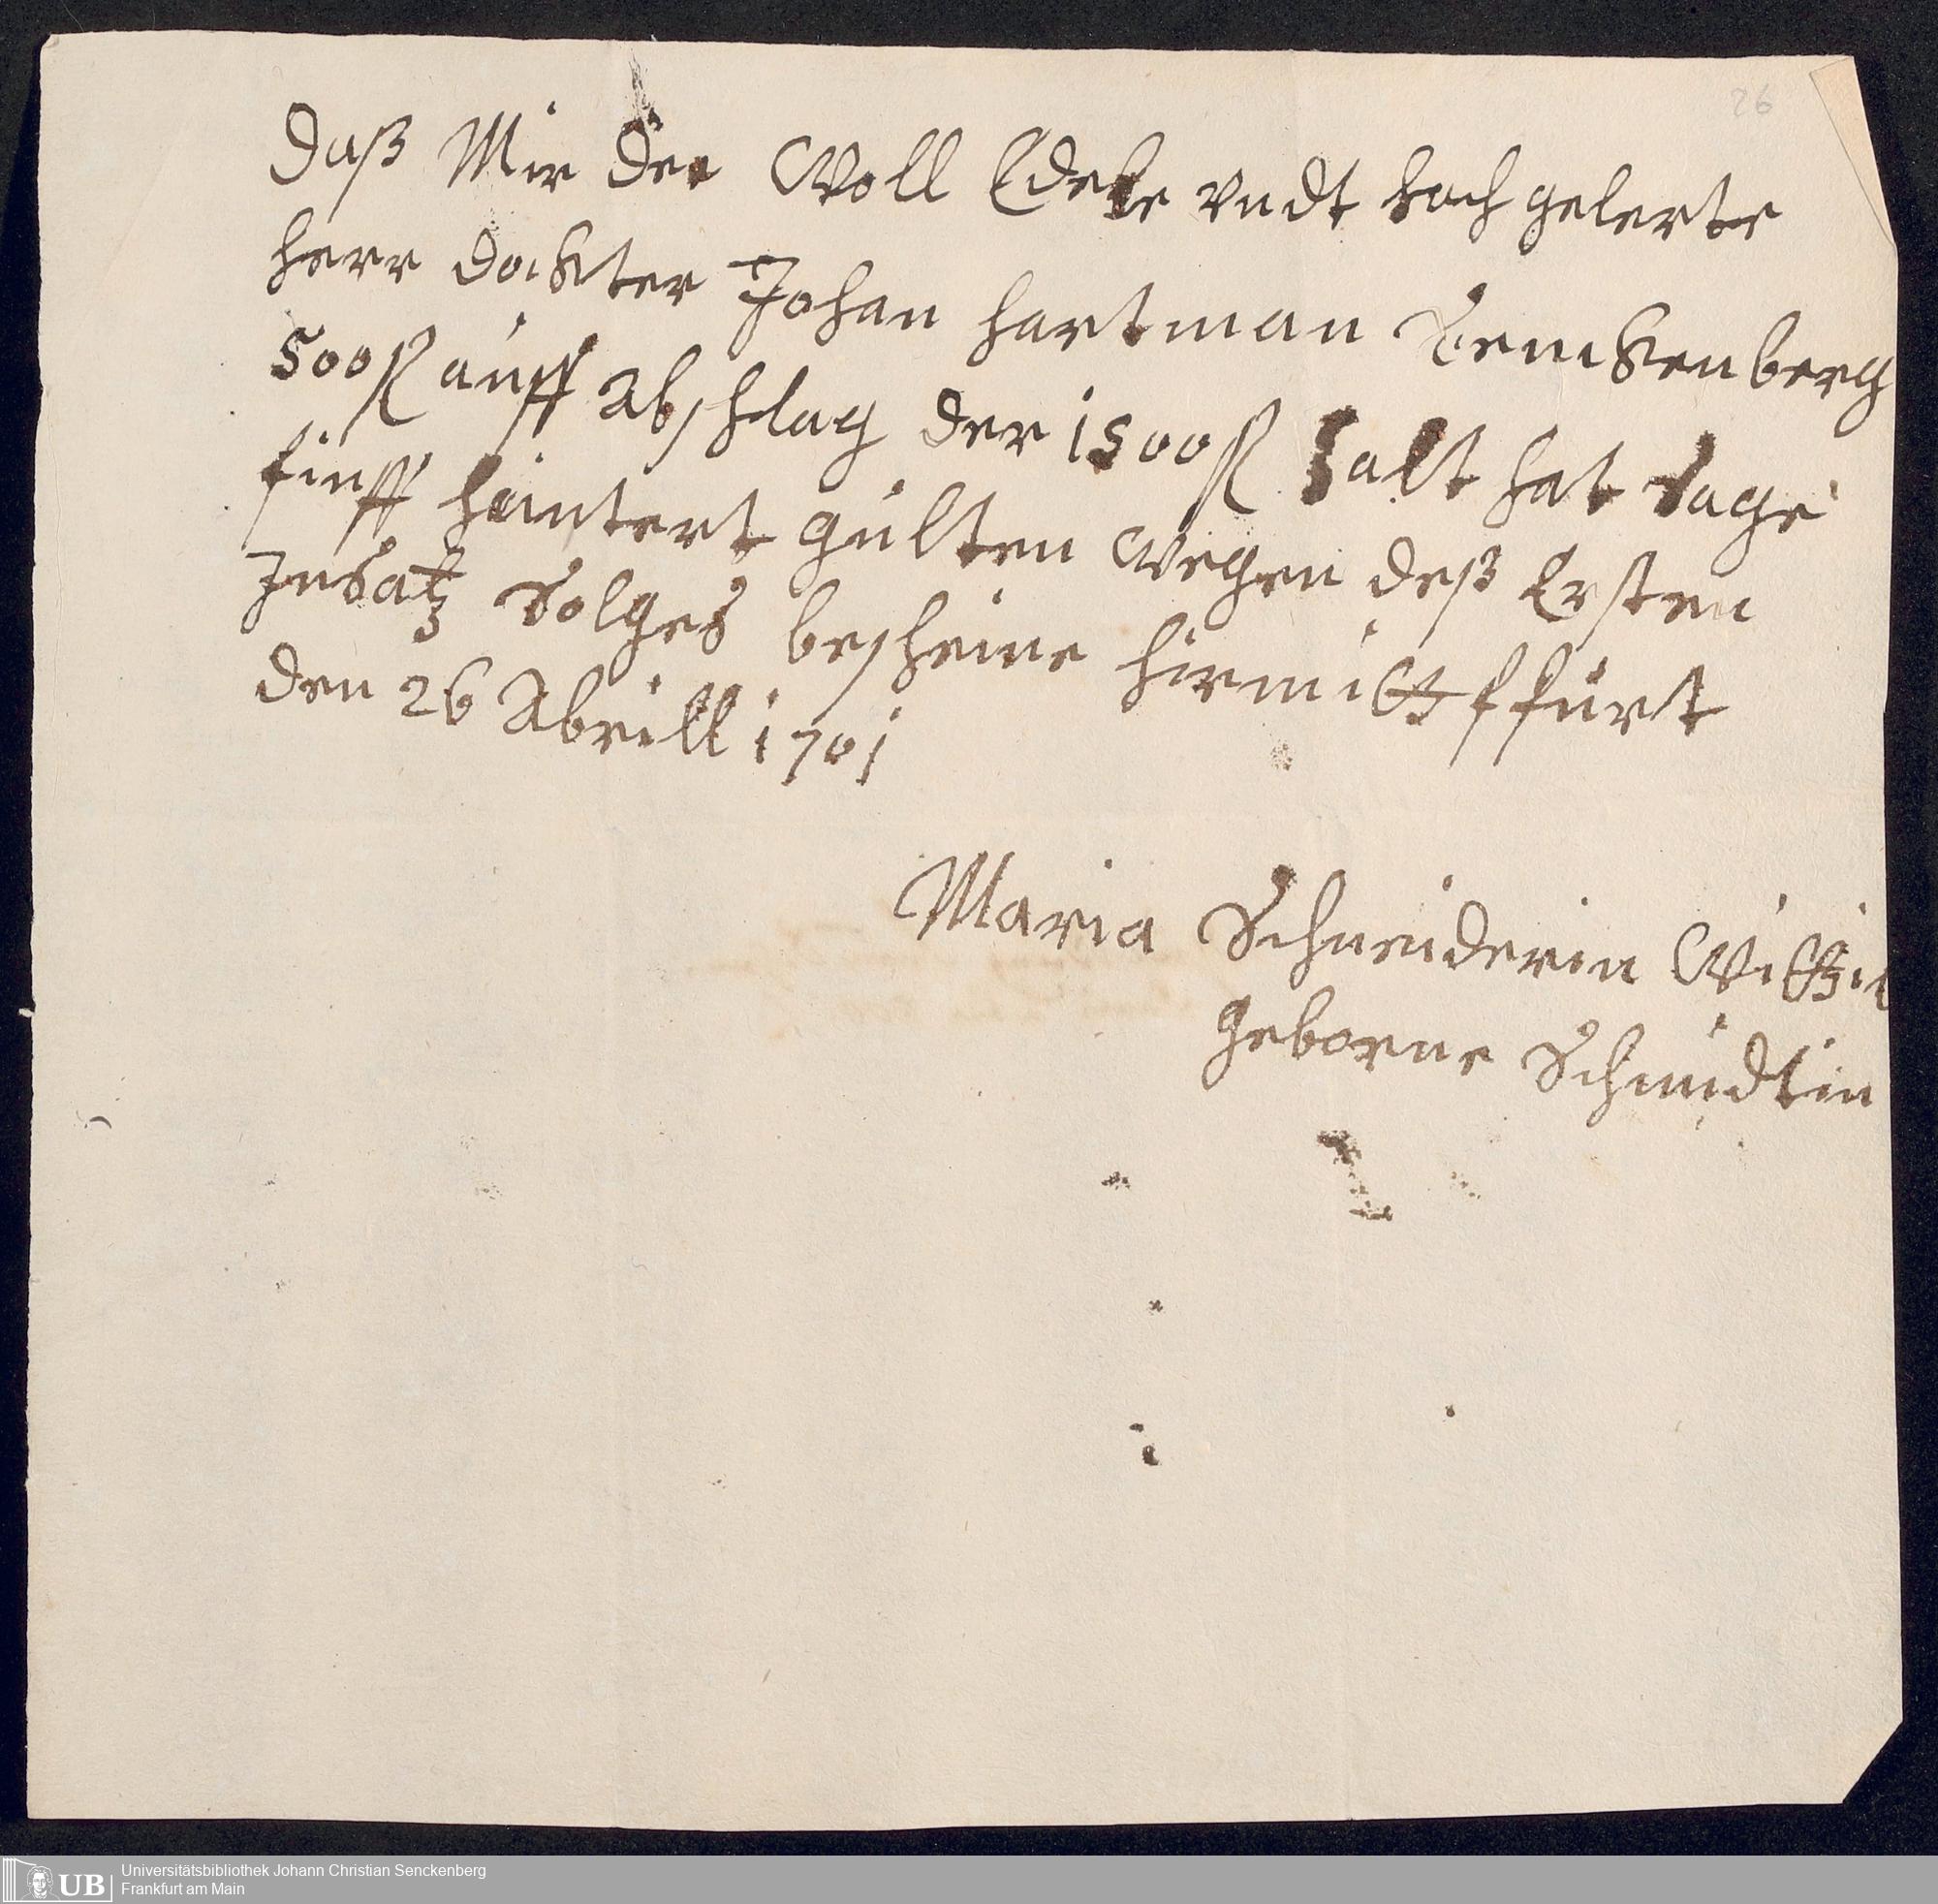 26
Daß Mir der Woll Edele vndt hoch gelerte
herr dockter Johan hartman Senckenberg
500 fl auff abschlag der 1500 fl zalt hat sage
finff huntert gulten wegen deß Ersten
Insatz Solges bescheine hirmitt ffurt
den 26 Abrill 1701
Maria Schneiderin Wittib
geborne Schmidtin
UB
Universitätsbibliothek Johann Christian Senckenberg
Frankfurt am Main